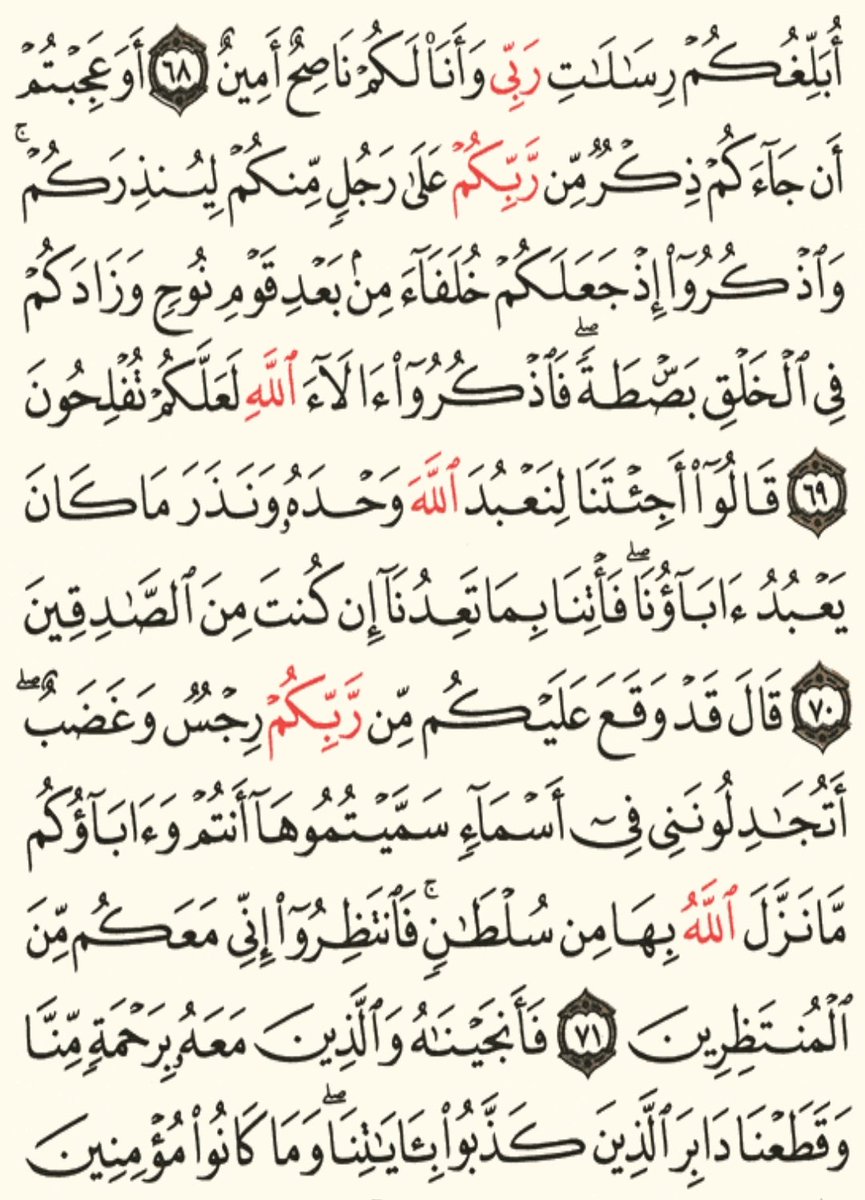 أُبَلِّغُكُمۡ رِسَٰلَٰتِ رَبِّي وَأَنَا۠ لَكُمۡ نَاصِحٌ أَمِينٌ ٦٨ أَوَعَجِبۡتُمۡ
أَن جَآءَكُمۡ ذِكۡرٞ مِّن رَّبِّكُمۡ عَلَىٰ رَجُلٖ مِّنكُمۡ لِيُنذِرَكُمۡۚ
وَٱذۡكُرُوٓاْ إِذۡ جَعَلَكُمۡ خُلَفَآءَ مِنۢ بَعۡدِ قَوۡمِ نُوحٖ وَزَادَكُمۡ
فِي ٱلۡخَلۡقِ بَصۜۡطَةٗۖ فَٱذۡكُرُوٓاْ ءَالَآءَ ٱللَّهِ لَعَلَّكُمۡ تُفۡلِحُونَ
٦٩ قَالُوٓاْ أَجِئۡتَنَا لِنَعۡبُدَ ٱللَّهَ وَحۡدَهُۥ وَنَذَرَ مَا كَانَ
يَعۡبُدُ ءَابَآؤُنَا ۖ فَأۡتِنَا بِمَا تَعِدُنَآ إِن كُنتَ مِنَ ٱلصَّٰدِقِينَ
٧٠ قَالَ قَدۡ وَقَعَ عَلَيۡكُم مِّن رَّبِّكُمۡ رِجۡسٞ وَغَضَبٌۖ
أَتُجَٰدِلُونَنِي فِيٓ أَسۡمَآءٖ سَمَّيۡتُمُوهَآ أَنتُمۡ وَءَابَآؤُكُم
مَّا نَزَّلَ ٱللَّهُ بِهَا مِن سُلۡطَٰنٖۚ فَٱنتَظِرُوٓاْ إِنِّي مَعَكُم مِّنَ
ٱلۡمُنتَظِرِينَ ٧١ فَأَنجَيۡنَٰهُ وَٱلَّذِينَ مَعَهُۥ بِرَحۡمَةٖ مِّنَّا
وَقَطَعۡنَا دَابِرَ ٱلَّذِينَ كَذَّبُواْ بِـَٔايَٰتِنَاۖ وَمَا كَانُواْ مُؤۡمِنِينَ